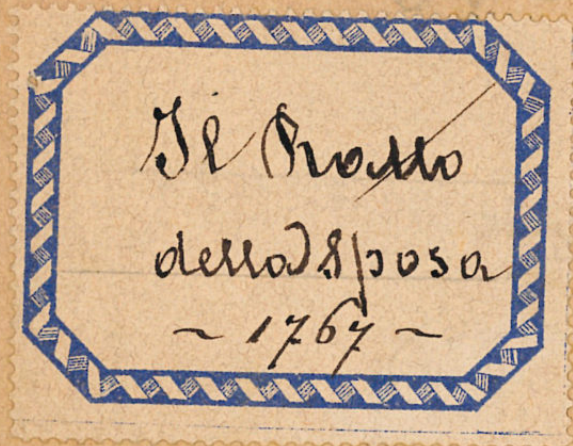 Il Ratto
della Sposa
~ 1767 ~